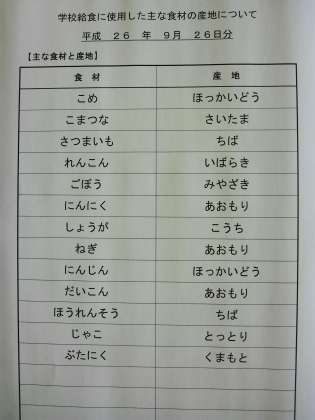 学校給食に使用した主な食材の産地について
平成 26 年 9月 26日分
【主な食材と産地】
食 材 産 地
こめ ほっかいどう
こまつな さいたま
さつまいも ちば
れんこん いばらき
ごぼう みやざき
にんにく あおもり
しょうが こうち
ねぎ あおもり
にんじん ほっかいどう
だいこん あおもり
ほうれんそう ちば
じゃこ とっとり
ぶたにく くまもと